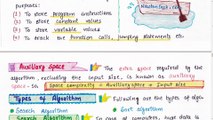 purposes
(1) To store program instructions
(2) To store constant values
(3) To store variable values
(4) To track the function calls, jumping statements etc.
Auxiliary Space :- The extra space required by the
algorithm, excluding the input size, is known as auxiliary
space. So Space complexity = Auxiliary space + Input size
Types of Algorithm Following are the types of algo
Search Algorithm Sort algorithm